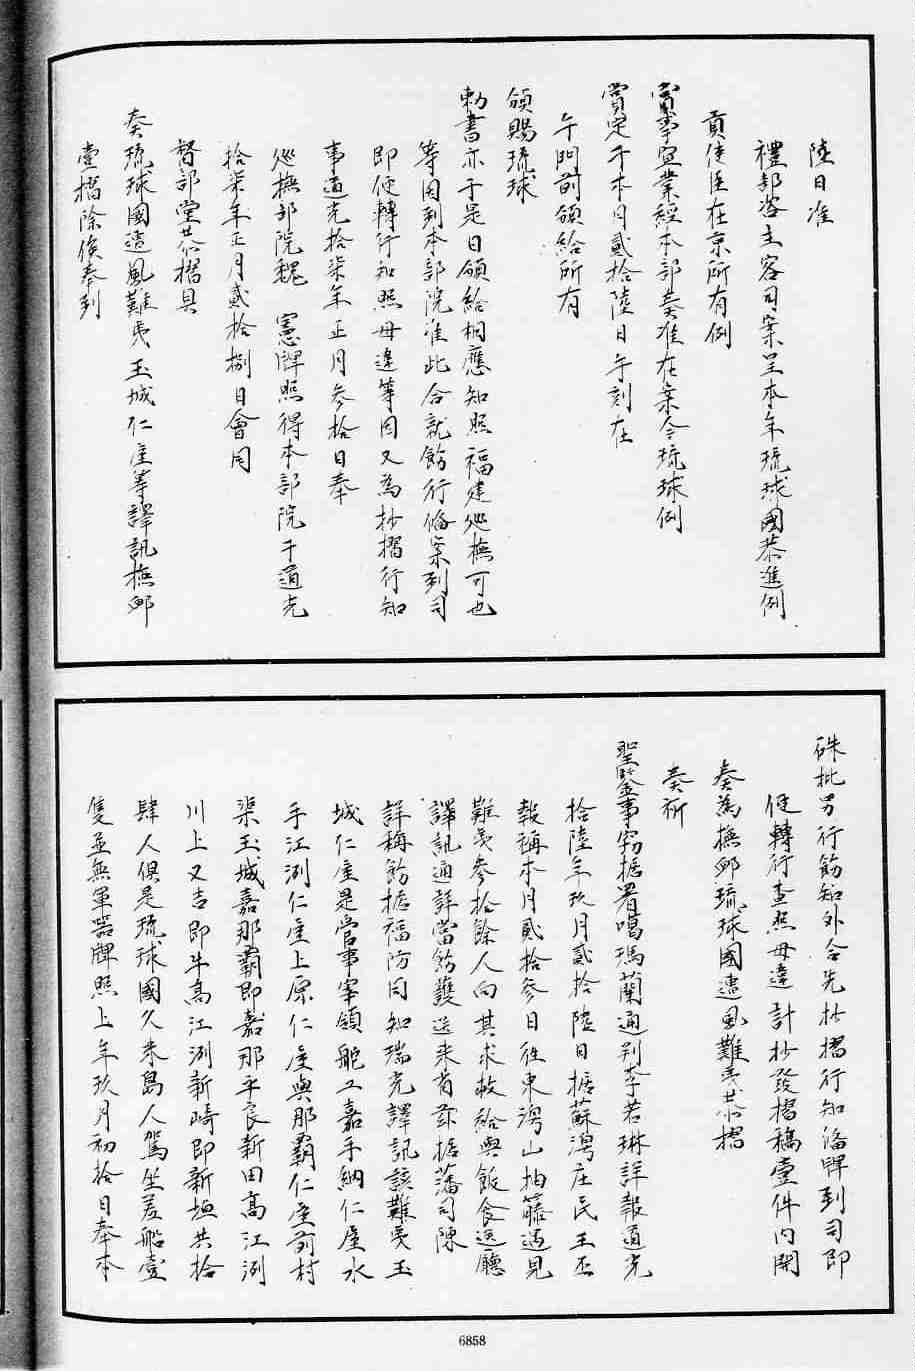 陸日准
禮部咨主客司案呈本年琉球國恭進例
貢使臣在京所有例
賞事宜業經本部奏准在案今琉球例
賞定于本月貳拾陸日午刻在
午門前頒給所有
頒賜琉球
勅書亦于是日頒給相應知照福建廵撫可也
等因到本部院准此合就飭行俻案到司
即便轉行知照毋違等因又為抄摺行知
事道光拾柒年正月參拾日奉
廵撫部院魏 憲牌照得本部院于道光
拾柒年正月貳拾捌日會同
督部堂 摺具
奏琉球國遭風難夷玉城仁屋等譯訊撫卹
壹摺除俟奉到
硃批另行飭知外合先抄摺行知俻牌到司即
便轉行查照毋違計抄發摺稿壹件內開
奏為撫卹琉球國遭風難夷 摺
奏祈
聖鑒事窃據署噶瑪蘭通判李若琳詳報道光
拾陸年玖月貳拾陸日據蘇澳庄民王丕
報稱本月貳拾參日往東澳山抽籐遇見
難夷參拾餘人向其求救給與飯食送廳
譯訊通詳當飭護送来省茲據藩司陳
詳稱飭據福防同知瑞光譯訊該難夷玉
城仁屋是官事宰領舵工嘉手納仁屋水
手江洌仁屋上原仁屋與那霸仁屋前村
渠玉城嘉那霸即嘉那平良新田高江洌
川上又吉即牛高江洌新崎即新垣共拾
肆人俱是琉球國久米島人駕坐差船壹
隻並無軍器牌照上年玖月初拾日奉本
6858